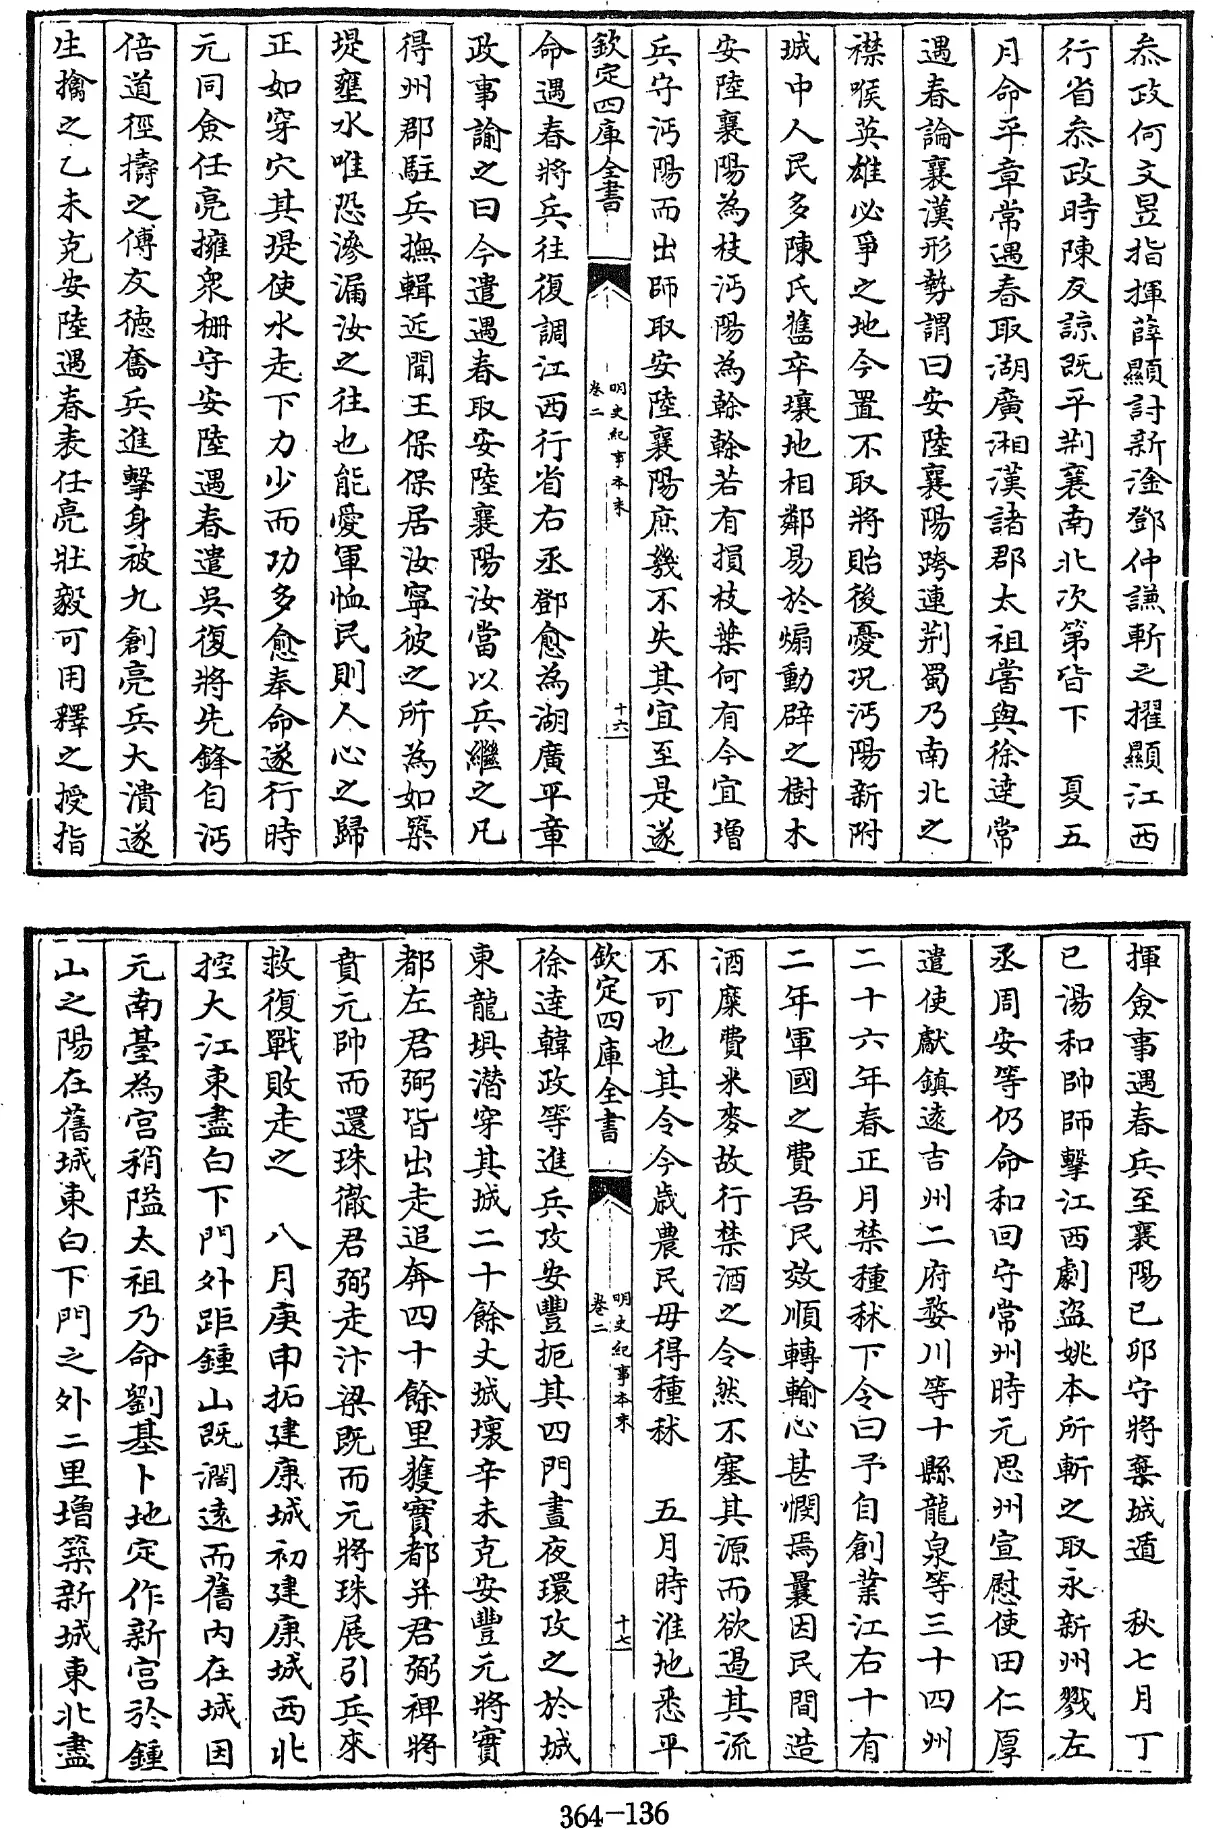 叅政何文昱指揮薛顯討新淦鄧仲謙斬之擢顯江西
行省叅政時陳友諒既平荆襄南北次第皆下　夏五
月命平章常遇春取湖廣湘漢諸郡太祖嘗與徐達常
遇春論襄漢形勢謂曰安陸襄陽跨連荆蜀乃南北之
襟喉英雄必爭之地今置不取將貽後憂況沔陽新附
城中人民多陳氏舊卒壤地相鄰易於煽動辟之樹木
安陸襄陽為枝沔陽為榦榦若有損枝葉何有今宜增
兵守沔陽而出師取安陸襄陽庶幾不失其宜至是遂
欽定四庫全書
明史紀事本末
卷二
十六
命遇春將兵往復調江西行省右丞鄧愈為湖廣平章
政事諭之曰今遣遇春取安陸襄陽汝當以兵繼之凡
得州郡駐兵撫輯近聞王保保居汝寧彼之所為如築
堤壅水唯恐滲漏汝之往也能愛軍恤民則人心之歸
正如穿穴其堤使水走下力少而功多愈奉命遂行時
元同僉任亮擁衆柵守安陸遇春遣吳復將先鋒自沔
倍道徑擣之傅友德奮兵進擊身被九創亮兵大潰遂
生擒之乙未克安陸遇春表任亮壯毅可用釋之授指
揮僉事遇春兵至襄陽己卯守將棄城遁　秋七月丁
巳湯和帥師擊江西劇盜姚本所斬之取永新州戮左
丞周安等仍命和回守常州時元思州宣慰使田仁厚
遣使獻鎮遠吉州二府婺川等十縣龍泉等三十四州
二十六年春正月禁種秫下令曰予自創業江右十有
二年軍國之費吾民效順轉輸心甚憫焉曩因民間造
酒糜費米麥故行禁酒之令然不塞其源而欲遏其流
不可也其令今歲農民毋得種秫　五月時淮地悉平
欽定四庫全書
明史紀事本末
卷二
十七
徐達韓政等進兵攻安豐扼其四門晝夜環攻之於城
東龍埧潛穿其城二十餘丈城壞辛未克安豐元將竇
都左君弼皆出走追奔四十餘里獲竇都并君弼裨將
賁元帥而還珠徹君弼走汴梁既而元將珠展引兵來
救復戰敗走之　八月庚申拓建康城初建康城西北
控大江東盡白下門外距鍾山既濶遠而舊內在城因
元南臺為宮稍隘太祖乃命劉基卜地定作新宮於鍾
山之陽在舊城東白下門之外二里增築新城東北盡
364-136